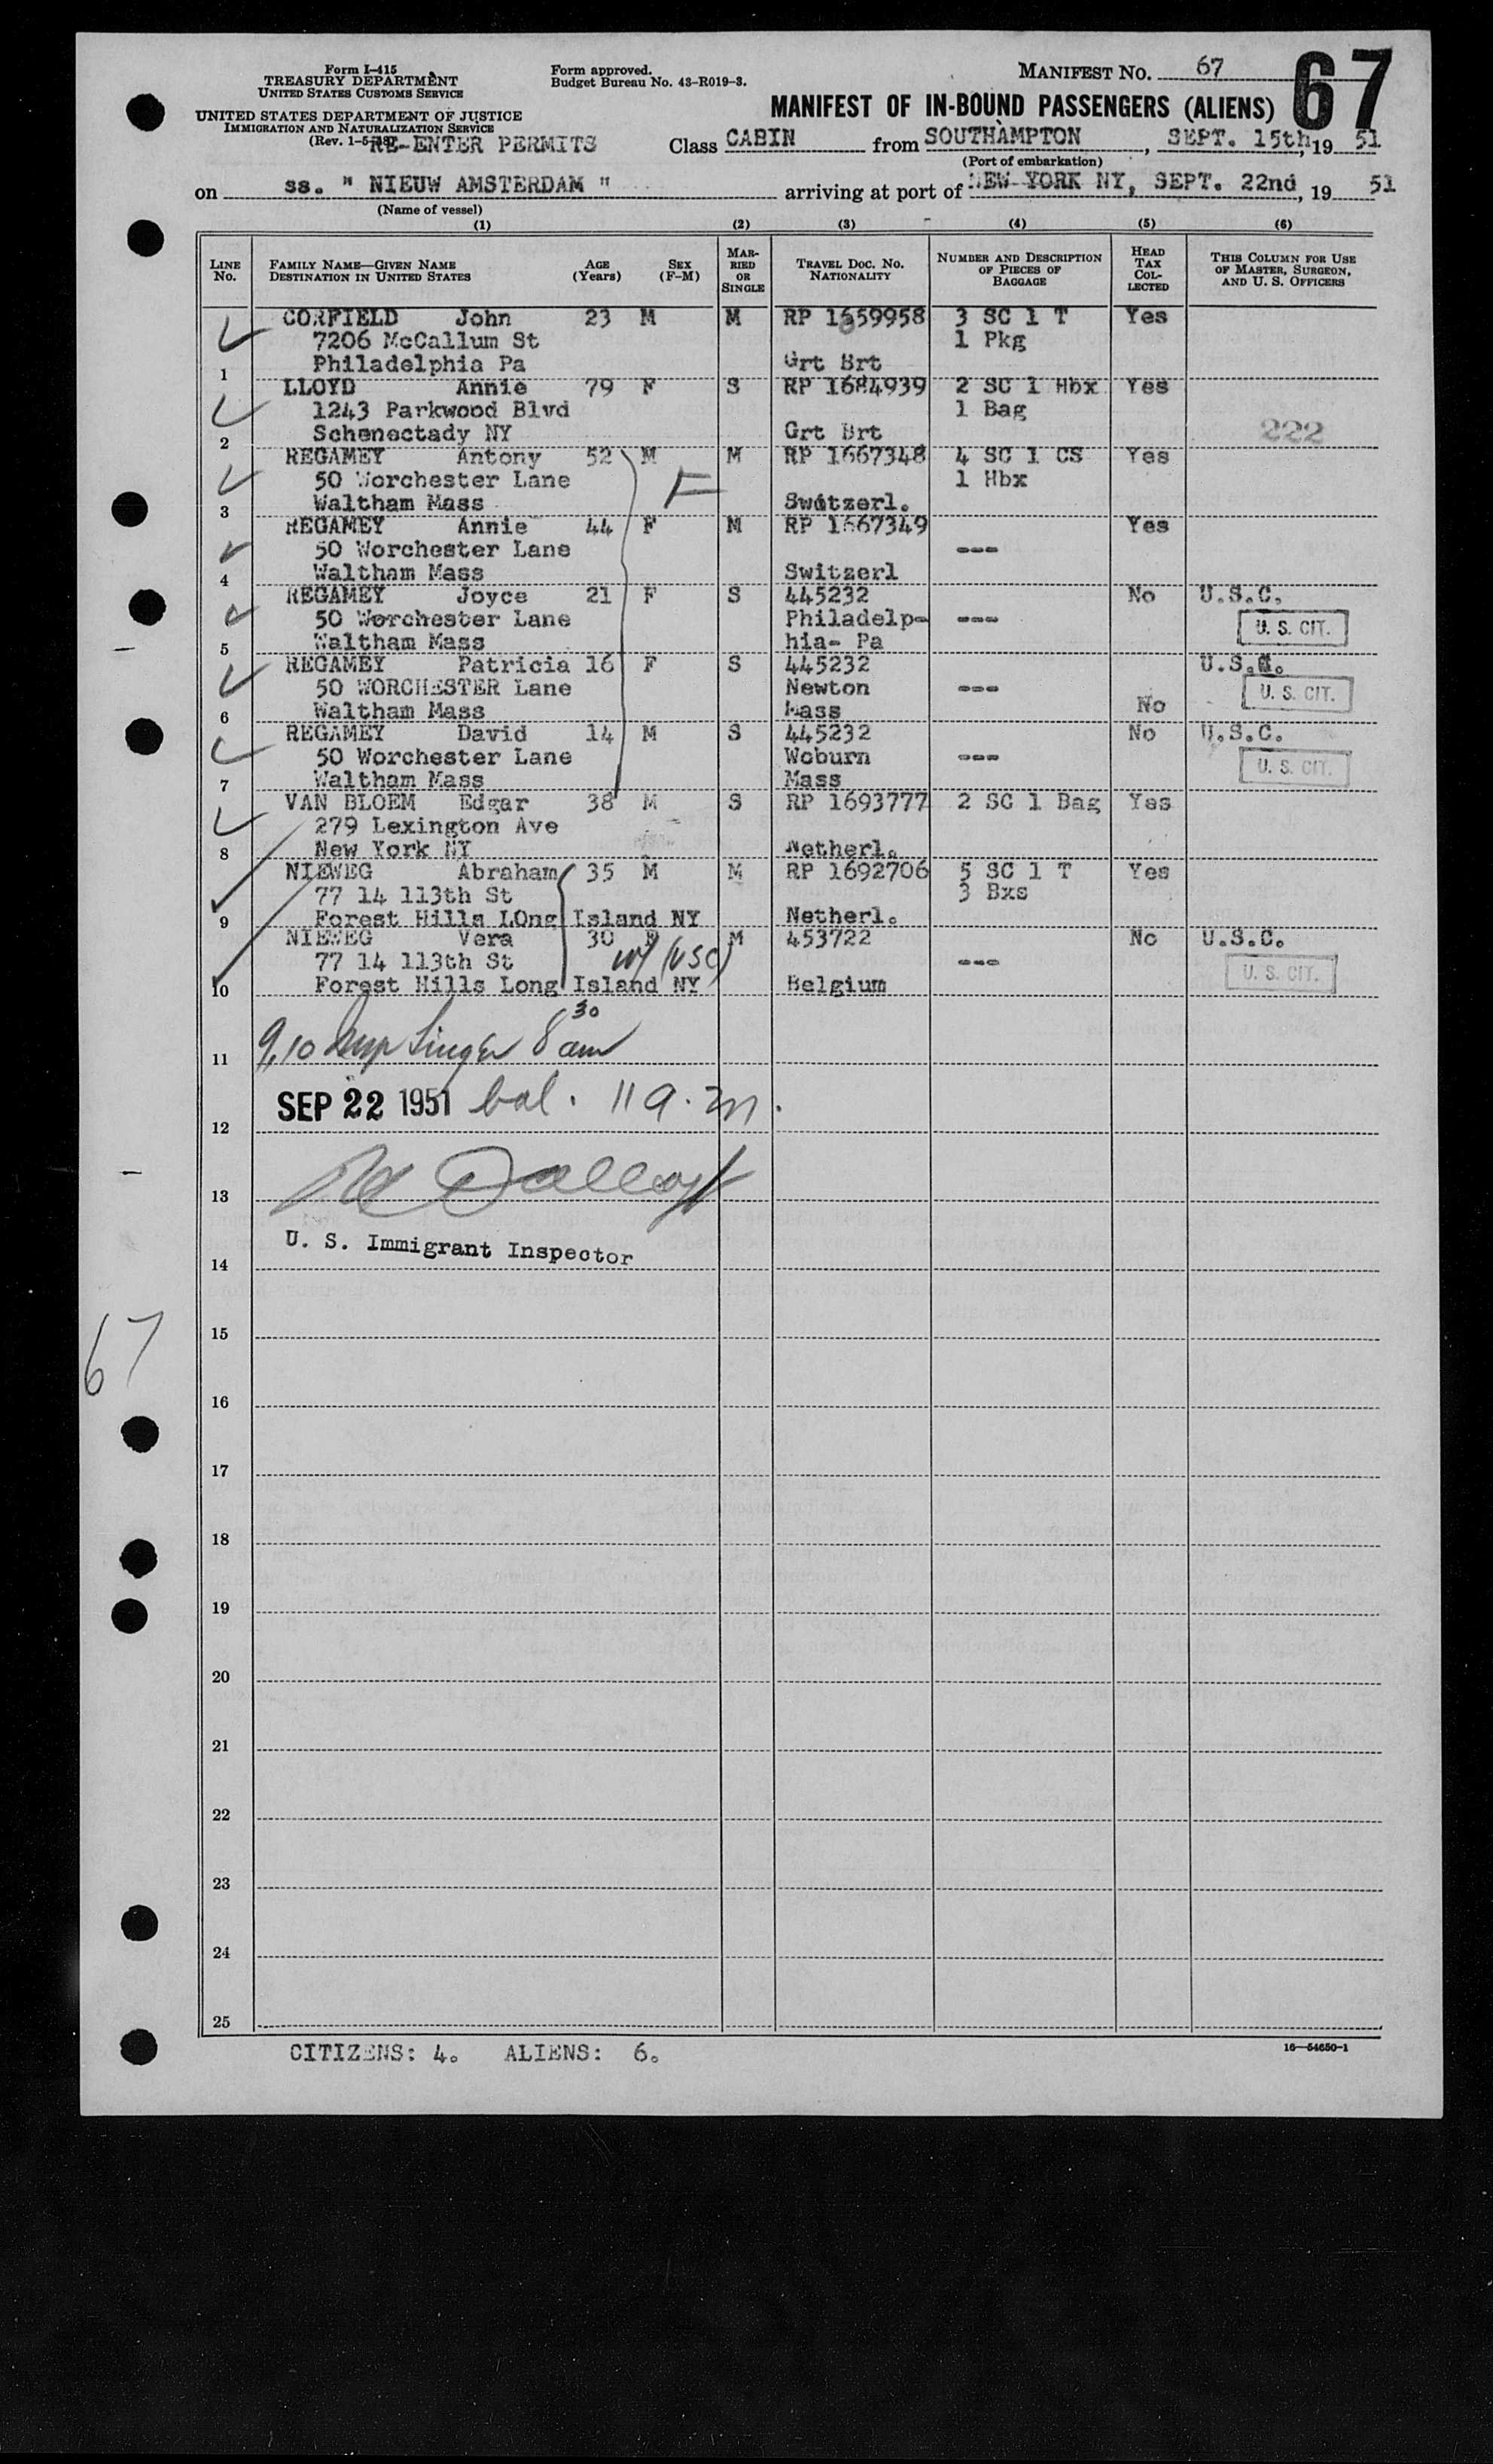 Form I-415
TREASURY DEPARTMENT
UNITED STATES CUSTOMS SERVICE
UNITED STATES DEPARTMENT OF JUSTICE
IMMIGRATION AND NATURALIZATION SERVICE
(Rev. 1-5-
RE-ENTER PERMITS
Form approved.
Budget Bureau No. 43-R019-3.
MANIFEST NO. 67
67
MANIFEST OF IN-BOUND PASSENGERS (ALIENS)
Class CABIN from SOUTHAMPTON, SEPT. 15th, 19 51
(Port of embarkation)
on ss. " NIEUW AMSTERDAM " arriving at port of NEW YORK NY, SEPT. 22nd, 19 51
(Name of vessel)
(1) (2) (3) (4) (5) (6)
LINE No. FAMILY NAME—GIVEN NAME DESTINATION IN UNITED STATES AGE (Years) SEX (F-M) MARRIED OR SINGLE TRAVEL DOC. NO. NATIONALITY NUMBER AND DESCRIPTION OF PIECES OF BAGGAGE HEAD TAX COLLECTED THIS COLUMN FOR USE OF MASTER, SURGEON, AND U. S. OFFICERS
CORFIELD John 23 M M RP 1659958 3 SC 1 T Yes
7206 McCallum St 1 Pkg
1 Philadelphia Pa Grt Brt
LLOYD Annie 79 F S RP 1684939 2 SC 1 Hbx Yes
1243 Parkwood Blvd 1 Bag
2 Schenectady NY Grt Brt 222
REGAMEY Antony 52 M M RP 1667348 4 SC 1 CS Yes
50 Worchester Lane F 1 Hbx
3 Waltham Mass Switzerl.
REGAMEY Annie 44 F M RP 1667349 Yes
50 Worchester Lane ---
4 Waltham Mass Switzerl
REGAMEY Joyce 21 F S 445232 No U.S.C.
50 Worchester Lane Philadelp- --- U. S. CIT.
5 Waltham Mass hia- Pa
REGAMEY Patricia 16 F S 445232 U.S.C.
50 WORCHESTER Lane Newton --- U. S. CIT.
6 Waltham Mass Mass No
REGAMEY David 14 M S 445232 No U.S.C.
50 Worchester Lane Woburn --- U. S. CIT.
7 Waltham Mass Mass
VAN BLOEM Edgar 38 M S RP 1693777 2 SC 1 Bag Yes
279 Lexington Ave
8 New York NY Netherl.
NIEWEG Abraham 35 M M RP 1692706 5 SC 1 T Yes
77 14 113th St 3 Bxs
9 Forest Hills LOng Island NY Netherl.
NIEWEG Vera 30 F M 453722 No U.S.C.
77 14 113th St W/ (USC) --- U. S. CIT.
10 Forest Hills Long Island NY Belgium
11 9,10 Insp Singer 8 30 am
12 SEP 22 1951 bal. 11 a.m.
13
14 U. S. Immigrant Inspector
67
15
16
17
18
19
20
21
22
23
24
25
CITIZENS: 4. ALIENS: 6.
16—54650-1